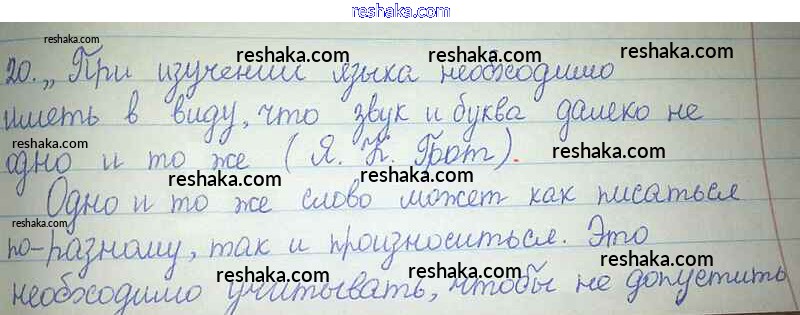 reshaka.com
reshaka.com reshaka.com reshaka.com
20. „При изучении языка необходимо
иметь в виду, что звук и буква далеко не
reshaka.com reshaka.com reshaka.com
одно и то же (Я. К. Грот).
reshaka.com reshaka.com reshaka.com
Одно и то же слово может как писаться
reshaka.com reshaka.com reshaka.com
по-разному, так и произноситься. Это
reshaka.com reshaka.com reshaka.com
необходимо учитывать, чтобы не допустить